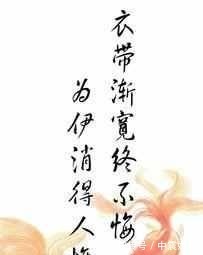 衣带渐寬终不悔
为伊消得人